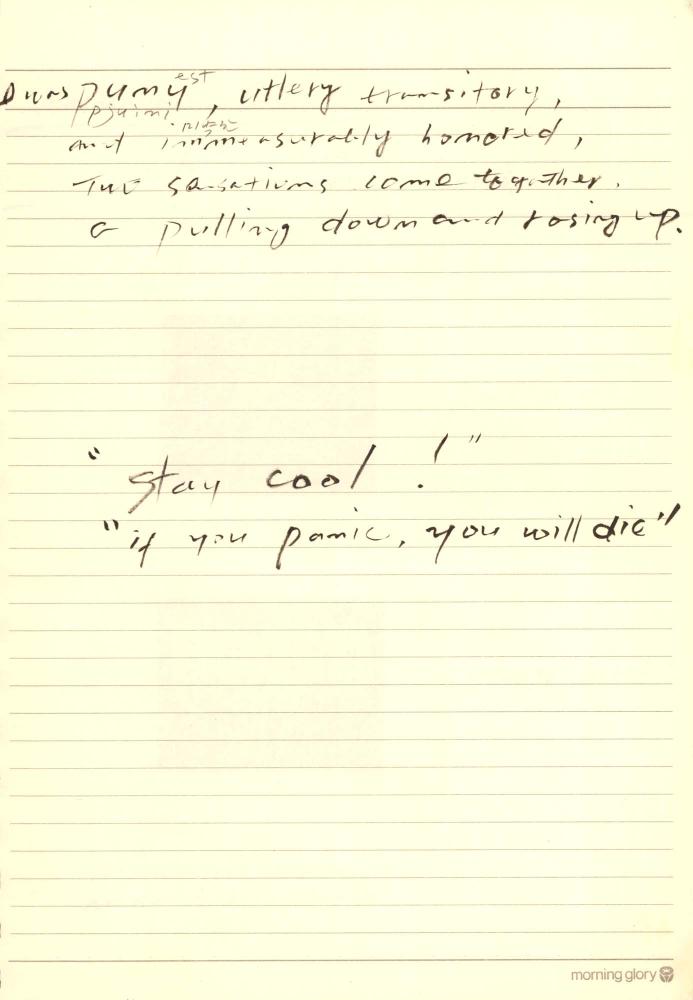 I was punyest, utlery transitory,
pjuini
and immeasurably honored,
Two sensations come together.
a pulling down and rosing up.
"stay cool !"
"if you panic, you will die"
morning glory